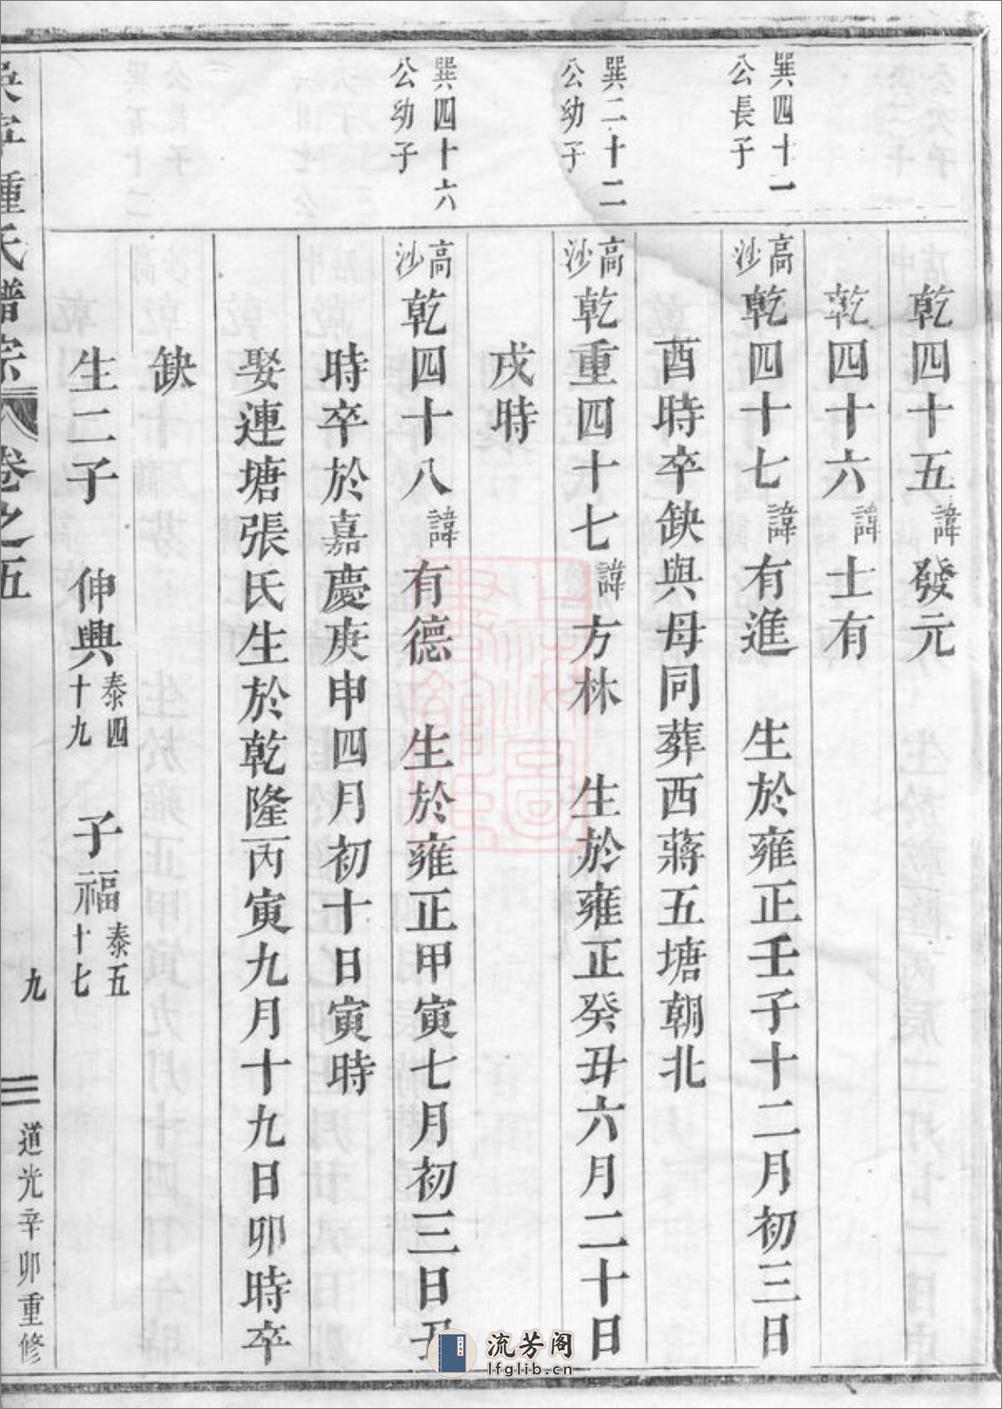 乾四十五諱發元
乾四十六諱士有
巽四十一
公長子
高沙乾四十七諱有進　生於雍正壬子十二月初三日
酉時卒缺與母同葬西蔣五塘朝北
巽二十二
公幼子
高沙乾重四十七諱方林　生於雍正癸丑六月二十日
戌時
巽四十六
公幼子
高沙乾四十八諱有德　生於雍正甲寅七月初三日丑
時卒於嘉慶庚申四月初十日寅時
娶連塘張氏生於乾隆丙寅九月十九日卯時卒
缺
生二子　伸興泰四十九　子福泰五十七
氏譜宗　卷之五　九　道光辛卯重修
流芳阁
lfglib.cn